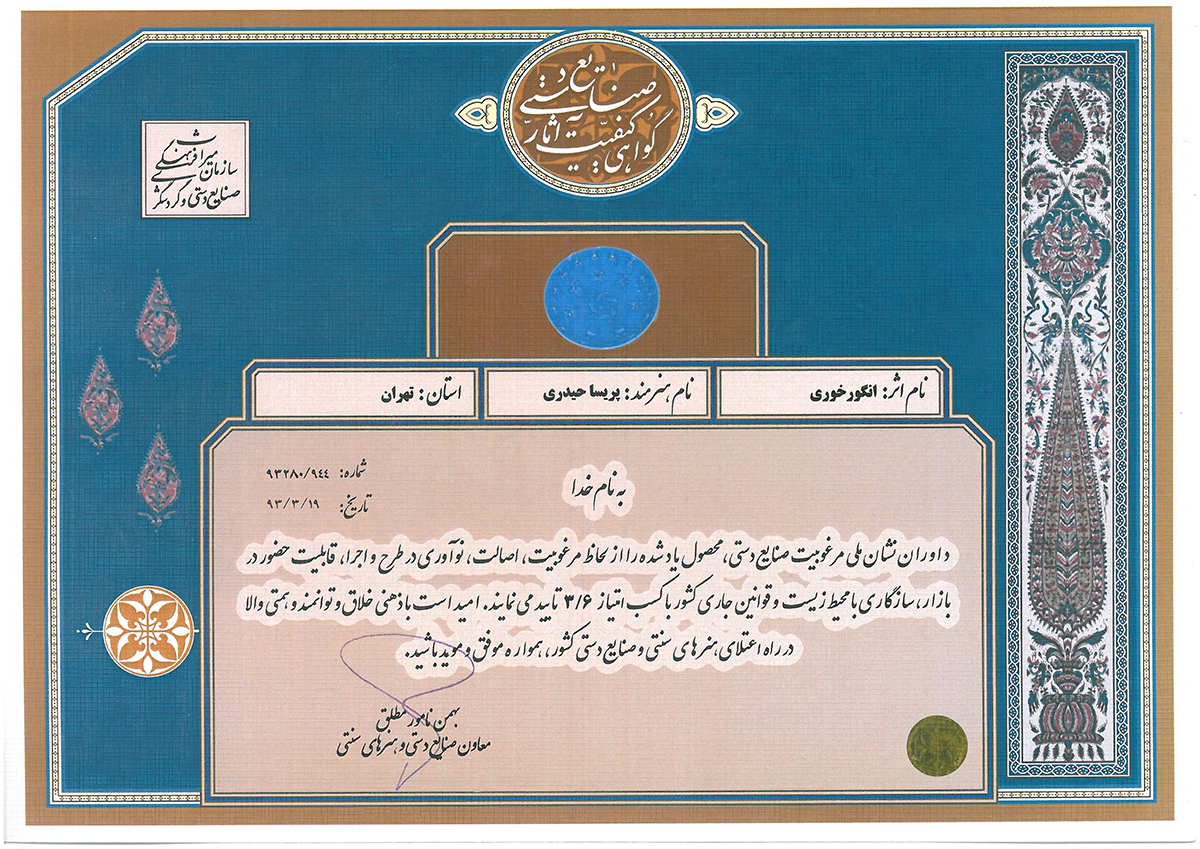 گواهی کیفیت آثار
صنایع دستی
سازمان میراث فرهنگی
صنایع دستی و گردشگری
نام اثر: انگورخوری
نام هنرمند: پریسا حیدری
استان: تهران
شماره: ۹۳۲۸۰/۹۴۴
تاریخ: ۹۳/۳/۱۹
به نام خدا
داوران نشان ملی مرغوبیت صنایع دستی، محصول یاد شده را از لحاظ مرغوبیت، اصالت، نوآوری در طرح و اجرا، قابلیت حضور در
بازار، سازگاری با محیط زیست و قوانین جاری کشور با کسب امتیاز ۳/۶ تایید می نمایند. امید است با ذهنی خلاق و توانمند و همتی والا
در راه اعتلای هنرهای سنتی و صنایع دستی کشور، همواره موفق و موید باشید.
بهمن نامور مطلق
معاون صنایع دستی و هنرهای سنتی